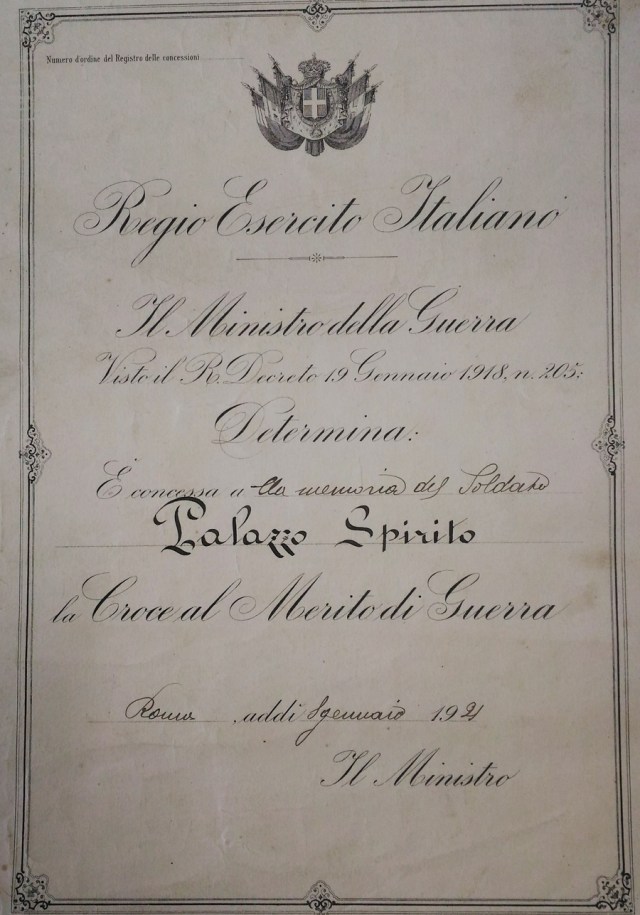 Numero d'ordine del Registro delle concessioni
Regio Esercito Italiano
Il Ministro della Guerra
Visto il R. Decreto 19 Gennaio 1918, n. 205;
Determina:
È concessa alla memoria del Soldato
Palazzo Spirito
la Croce al Merito di Guerra
Roma addì 8 gennaio 1921
Il Ministro